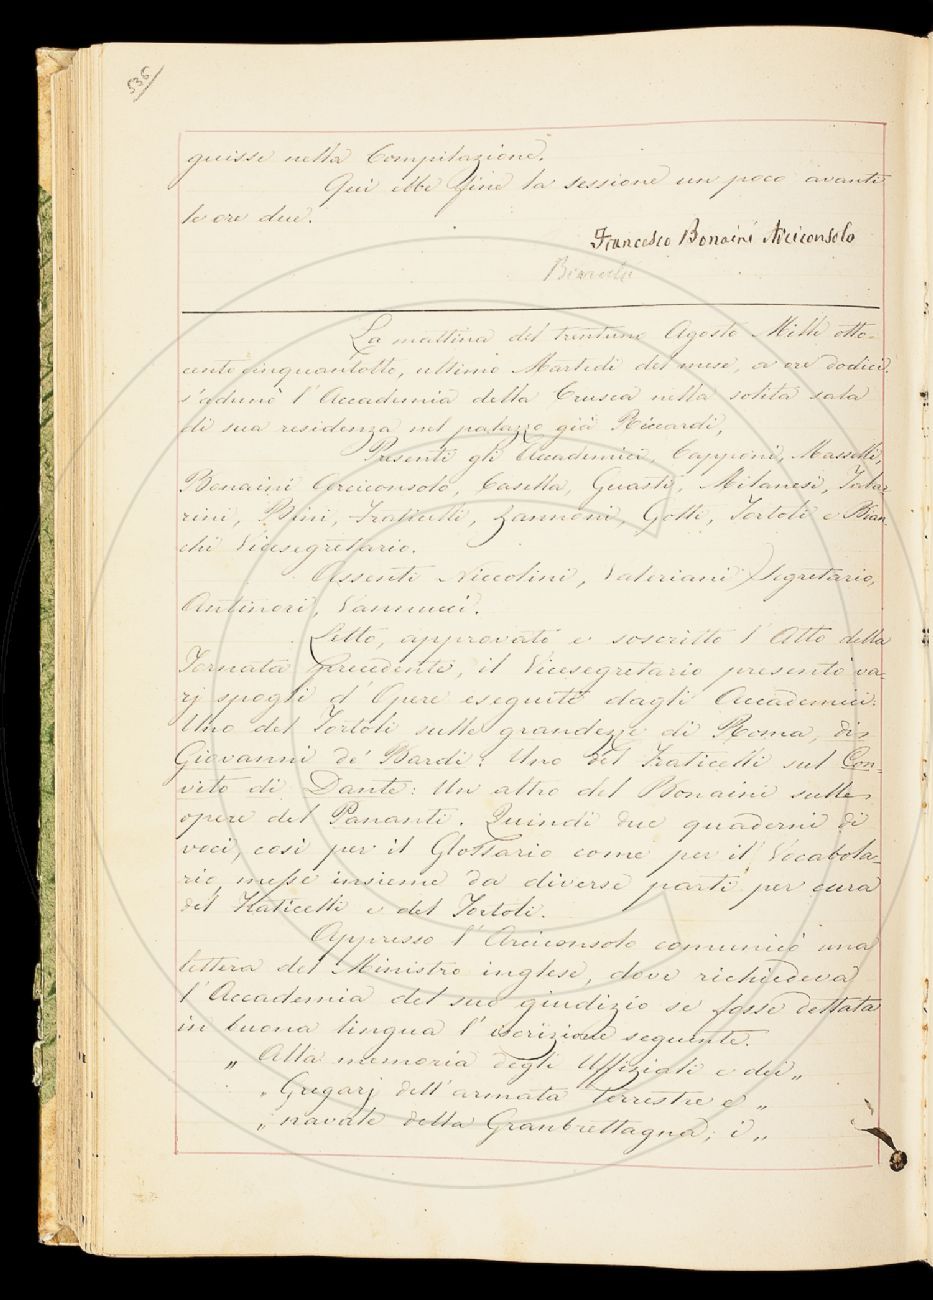 536
guisse nella Compilazione.
Qui ebbe fine la sessione un poco avanti
le ore due.
Francesco Bonaini Arciconsolo
La mattina del trentuno Agosto Mille otto-
cento cinquantotto, ultimo Martedì del mese, a ore dodici
s'adunò l'Accademia della Crusca nella solita sala
di sua residenza nel palazzo già Riccardi,
Presenti gli Accademici, Capponi, Masselli,
Bonaini Arciconsolo, Casella, Guasti, Milanesi, Tabar-
rini, Bini, Fraticelli, Zannoni, Gotti, Tortoli e Bian-
chi Vicesegretario.
Assenti Niccolini, Valeriani Segretario,
Antinori, Vannucci.
Letto, approvato e soscritto l'Atto della
Tornata precedente, il Vicesegretario presentò va-
rj spogli d'Opere eseguiti dagli Accademici:
Uno del Tortoli sulle grandezze di Roma, di
Giovanni de' Bardi: Uno del Fraticelli sul Con-
vito di Dante: Un altro del Bonaini sulle
opere del Pananti. Quindi due quaderni di
voci, così per il Glossario come per il Vocabola-
rio messe insieme da diverse parti per cura
del Fraticelli e del Tortoli.
Appresso l'Arciconsolo comunicò una
lettera del Ministro inglese, dove richiedeva
l'Accademia del suo giudizio se fosse dettata
in buona lingua l'iscrizione seguente.
„ Alla memoria degli Uffiziali e dei „
„ Gregarj dell'armata terrestre e „
„ navale della Granbrettagna, i „